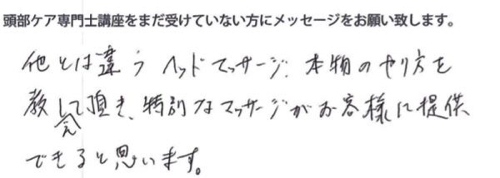 頭部ケア専門士講座をまだ受けていない方にメッセージをお願い致します。
他とは違うヘッドマッサージ、本物のやり方を
教えて頂き、特別なマッサージがお客様に提供
できると思います。